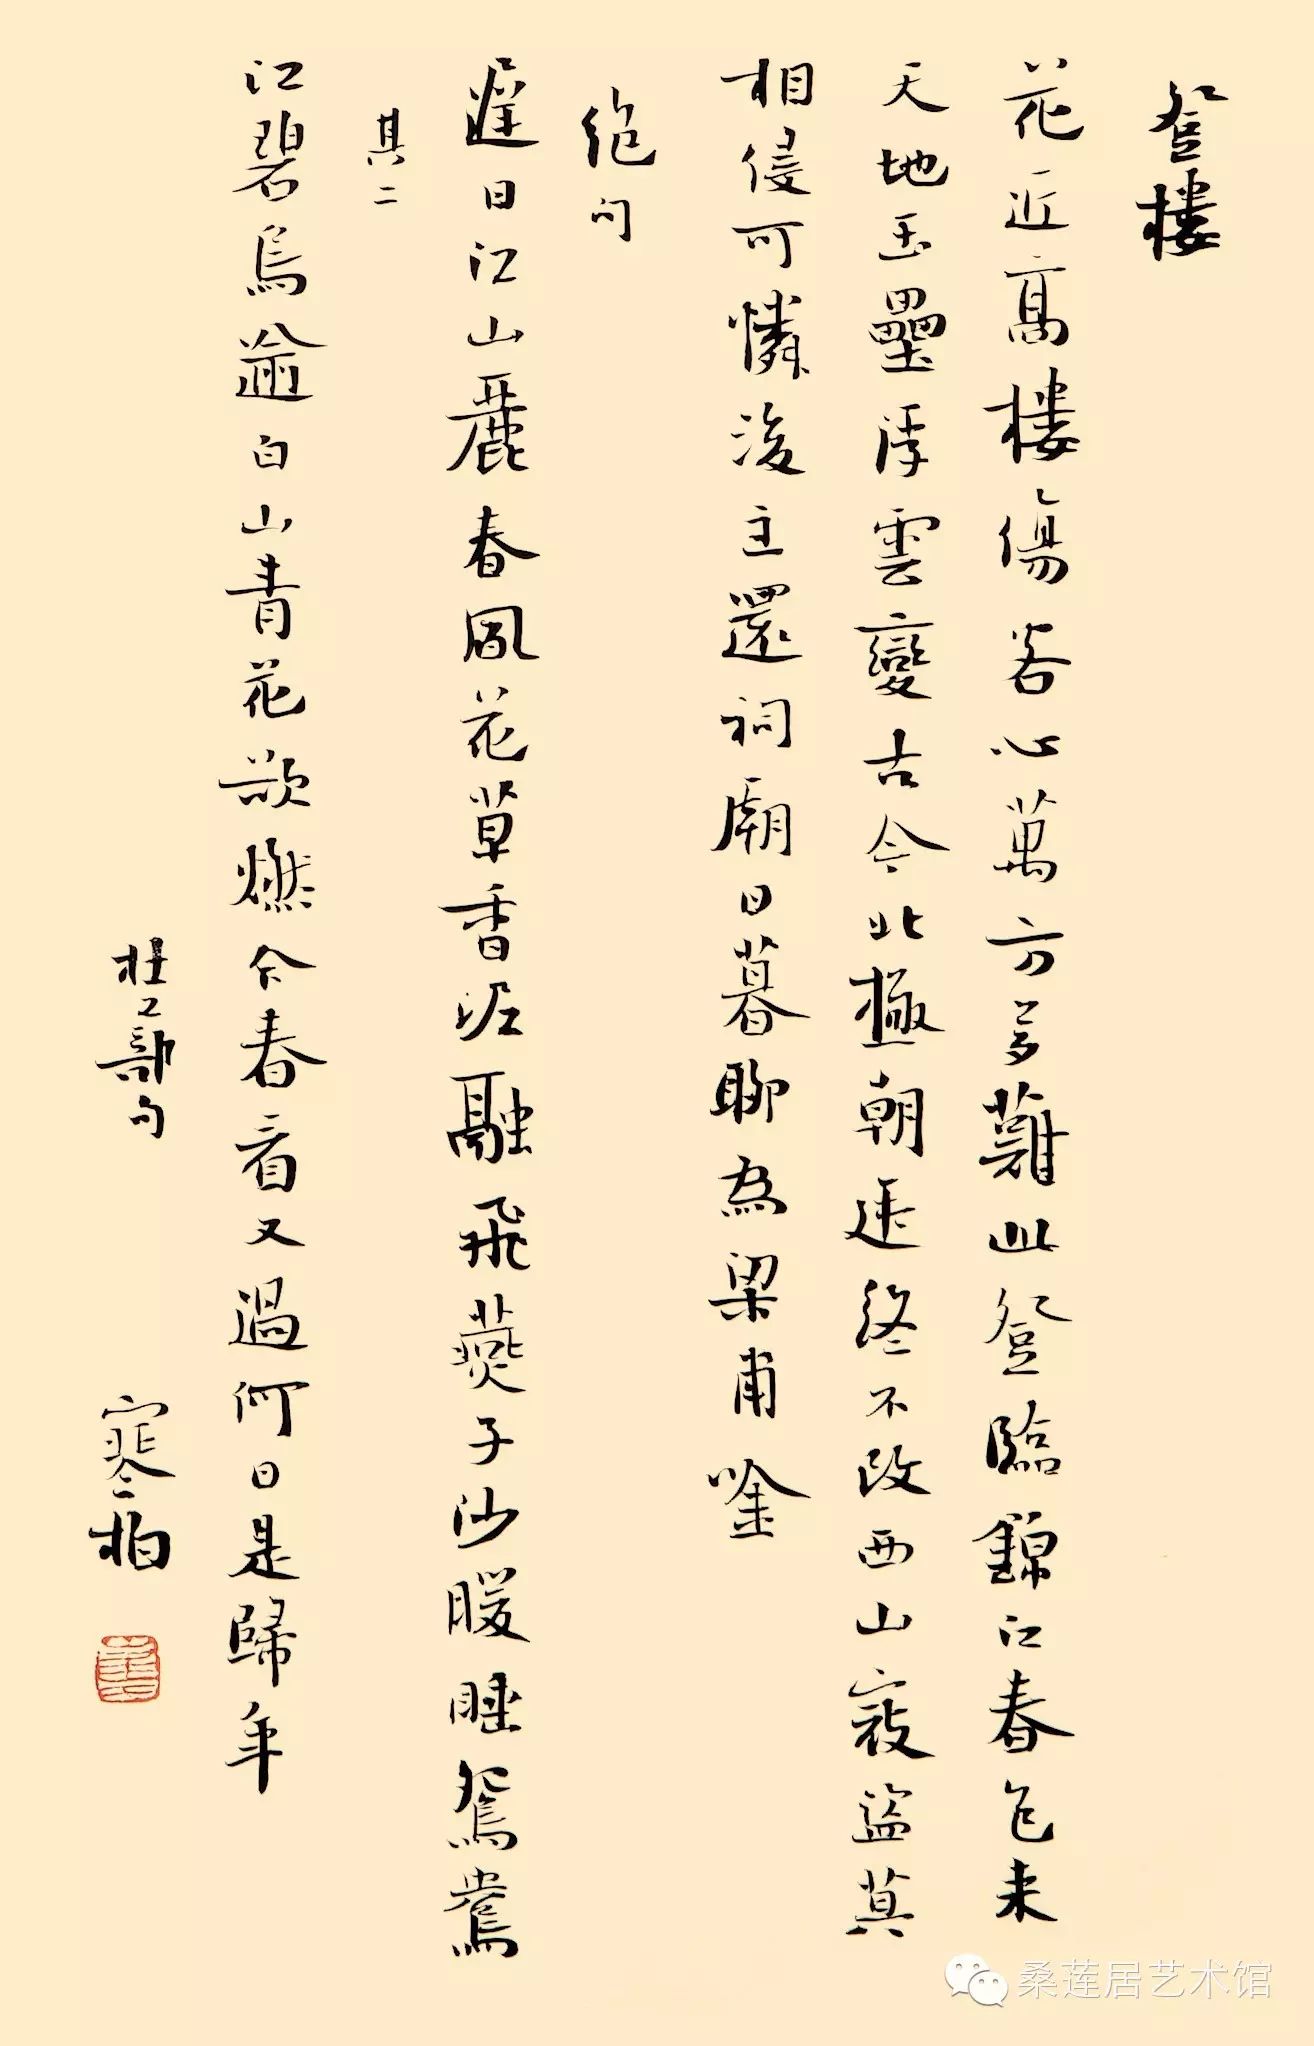 登樓
花近高樓傷客心萬方多難此登臨錦江春色来
天地玉壘浮雲變古今北極朝廷終不改西山寇盜莫
相侵可憐後主還祠廟日暮聊為梁甫唫
絕句
遲日江山麗春風花草香泥融飛燕子沙暖睡鴛鴦
其二
江碧鳥逾白山青花欲燃今春看又過何日是歸年
杜工部句
寒柏
桑莲居艺术馆